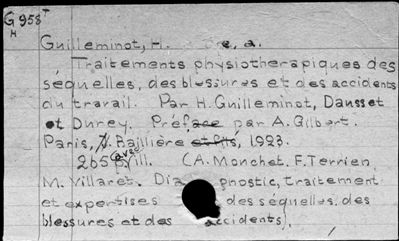 G958
H
Guilleminot, H. e, a.
Traitements physiotherapiques des
séquelles, des blessures et des accidents
du travail. Par H. Guilleminot, Dausset
et Durey. Préface par A. Gilbert.
Paris, J. Baillière et fils, 1923.
265 p. avec ill. (A. Monchet. F. Terrien
M. Villaret. Dia gnostic, traitement
et expertises des séquelles des
blessures et des accidents).